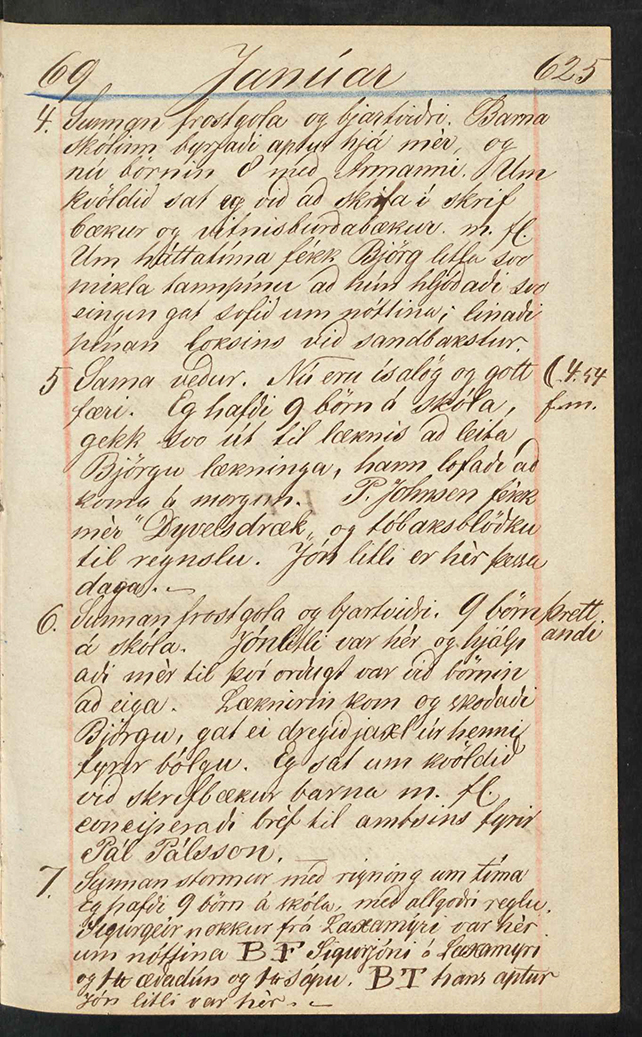 69 Janúar 625
4. Sunnan frostgola og bjartviðri. Barna
skólinn byrjaði aptur hjá mér, og
nú börnin 8 með Ármanni. Um
kvöldið sat eg við að skrifa í skrif
bækur og vitnisburðabækur m. fl.
Um háttatíma fékk Björg litla svo
mikla tannpínu að hún hljóðaði svo
eingin gat sofið um nóttina; linaði
pínan loksins við sandbakstur.
5 Sama veður. Nú eru ísalög og gott ( 4.54
færi. Eg hafði 9 börn á skóla, f.m.
gekk svo út til læknis að leita
Björgu lækninga, hann lofaði að
koma á morgun. P. Johnsen fékk
mér "Dyvelsdræk" og tóbaksblöðku
til reynslu. Jón litli er hér þessa
daga. –
6. Sunnan frostgola og bjartviðri. 9 börn Þrett
á skóla. Jón litli var hér og hjálp andi
aði mér til því örðugt var við börnin
að eiga. Læknirin kom og skoðaði
Björgu, gat ei dregið jaxl úr henni
fyrir bólgu. Eg sat um kvöldið
við skrifbækur barna m. fl.
conciperaði bréf til amtsins fyrir
Pál Pálsson.
7. Sunnan stormur með rigning um tíma
Eg hafði 9 börn á skóla, með allgóðri reglu.
Sigurgeir nokkur frá Laxamýri var hér
um nóttina BF Sigurjóni á Laxamýri
og 1 tt æðadún og 1 tt sápu. BT hans aptur
Jón litli var hér. –